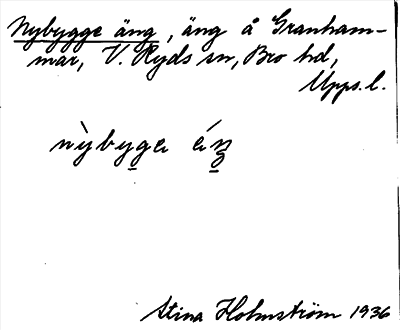 Nybygge äng, äng å Granham-
mar, V. Ryds sn, Bro hd,
Upps. l.
Stina Holmström 1936